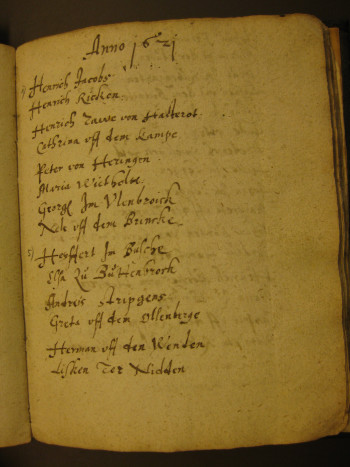 Anno 1621
Henrich Jacobs
Henrich Rieken
Henrich Tawe von Halterot
Cathrina vff dem Kampe
Peter von Heringen
Maria Wietholtz
Georg Im Vlenbroick
Nele vff dem Brincke
Heyffert Im Busche
Elsa Zu Buttenbrock
Andreis Aripgens
Greta vff dem Ollenberge
Herman vff den Wenden
Lisken Ter Nidden